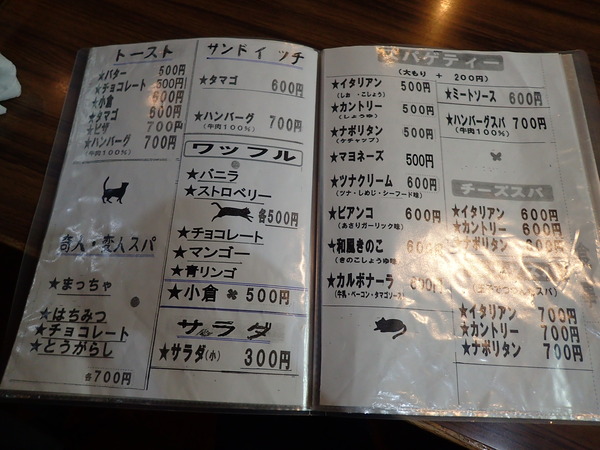 トースト
★バター 500円
★チョコレート 500円
★小倉 500円
★タマゴ 600円
★ピザ 700円
★ハンバーグ 700円
(牛肉100%)
奇人・変人スパ
★まっちゃ
★はちみつ
★チョコレート
★とうがらし
各700円
サンドイッチ
★タマゴ 600円
★ハンバーグ 700円
(牛肉100%)
ワッフル
★バニラ
★ストロベリー
各500円
★チョコレート
★マンゴー
★青リンゴ
★小倉 500円
サラダ
★サラダ(小) 300円
パゲティー
(大もり + 200円)
★イタリアン 500円
(しお・こしょう)
★カントリー 500円
(しょうゆ)
★ナポリタン 500円
(ケチャップ)
★マヨネーズ 500円
★ツナクリーム 600円
(ツナ・しめじ・シーフード味)
★ビアンコ 600円
(あさりガーリック味)
★和風きのこ 600円
(きのこしょうゆ味)
★カルボナーラ 600円
(牛乳・ベーコン・タマゴソース)
★ミートソース 600円
★ハンバーグスパ 700円
(牛肉100%)
チーズスパ
★イタリアン 600円
★カントリー 600円
★ナポリタン 600円
スパ)
★イタリアン 700円
★カントリー 700円
★ナポリタン 700円